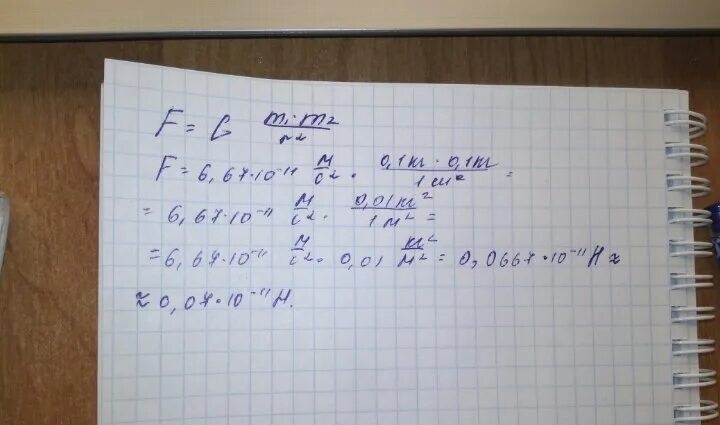 F = G m₁·m₂/r²
F = 6,67·10⁻¹¹ м/с² · 0,1кг · 0,1кг/1см² =
= 6,67·10⁻¹¹ м/с² · 0,01кг²/1м² =
= 6,67·10⁻¹¹ м/с² · 0,01 кг²/м² = 0,0667·10⁻¹¹ Н ≈
≈ 0,07·10⁻¹¹ Н.